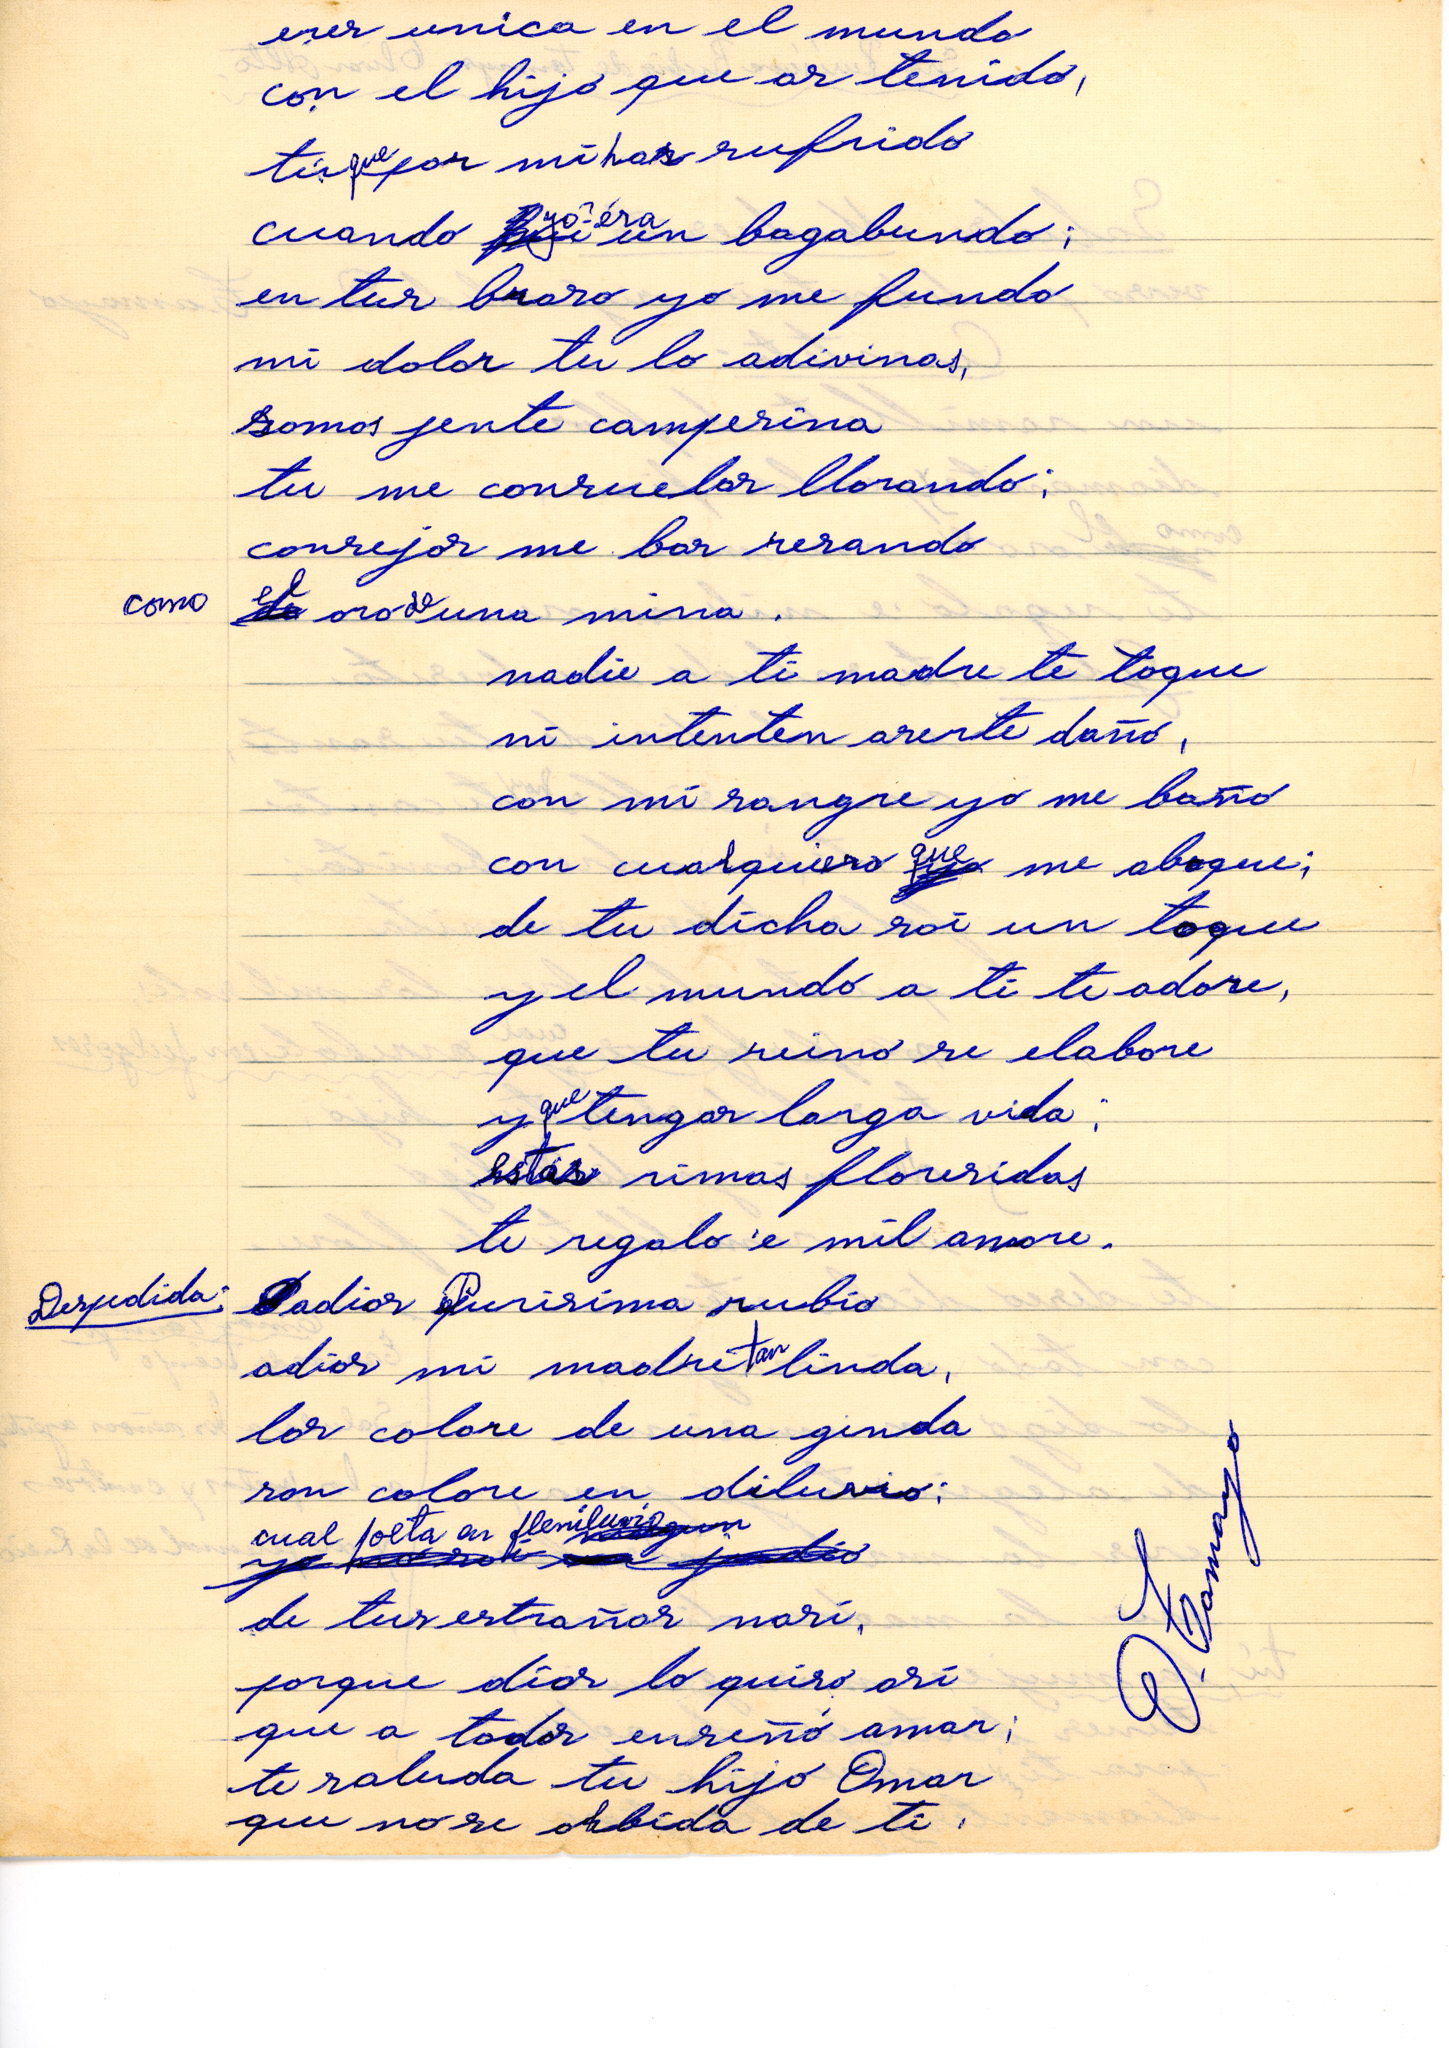 eres unica en el mundo
con el hijo que as tenido,
tú que por mi has sufrido
cuando yo era un bagabundo;
en tus braso yo me fundo
mi dolor tu lo adivinas,
somos jente campesina
tu me consuelas llorando;
consejos me bas resando
como el oro de una mina.
nadie a ti madre te toque
ni intenten aserte daño,
con mi sangre yo me baño
con cualquiera que me aboque;
de tu dicha soi un toque
y el mundo a ti te adore,
que tu reino se elabore
y que tengas larga vida;
estas rimas floresidas
te regalo 'e mil amore.
Despedida: adios Purisima rubio
adios mi madre tan linda,
los colore de una ginda
son colore en diluvio;
cual poeta en plenilunio
de tus estrañas nasi,
porque dios lo quiso asi
que a todos enseñó amar;
te saluda tu hijo Omar
que no se olbida de ti.
O. Tamayo